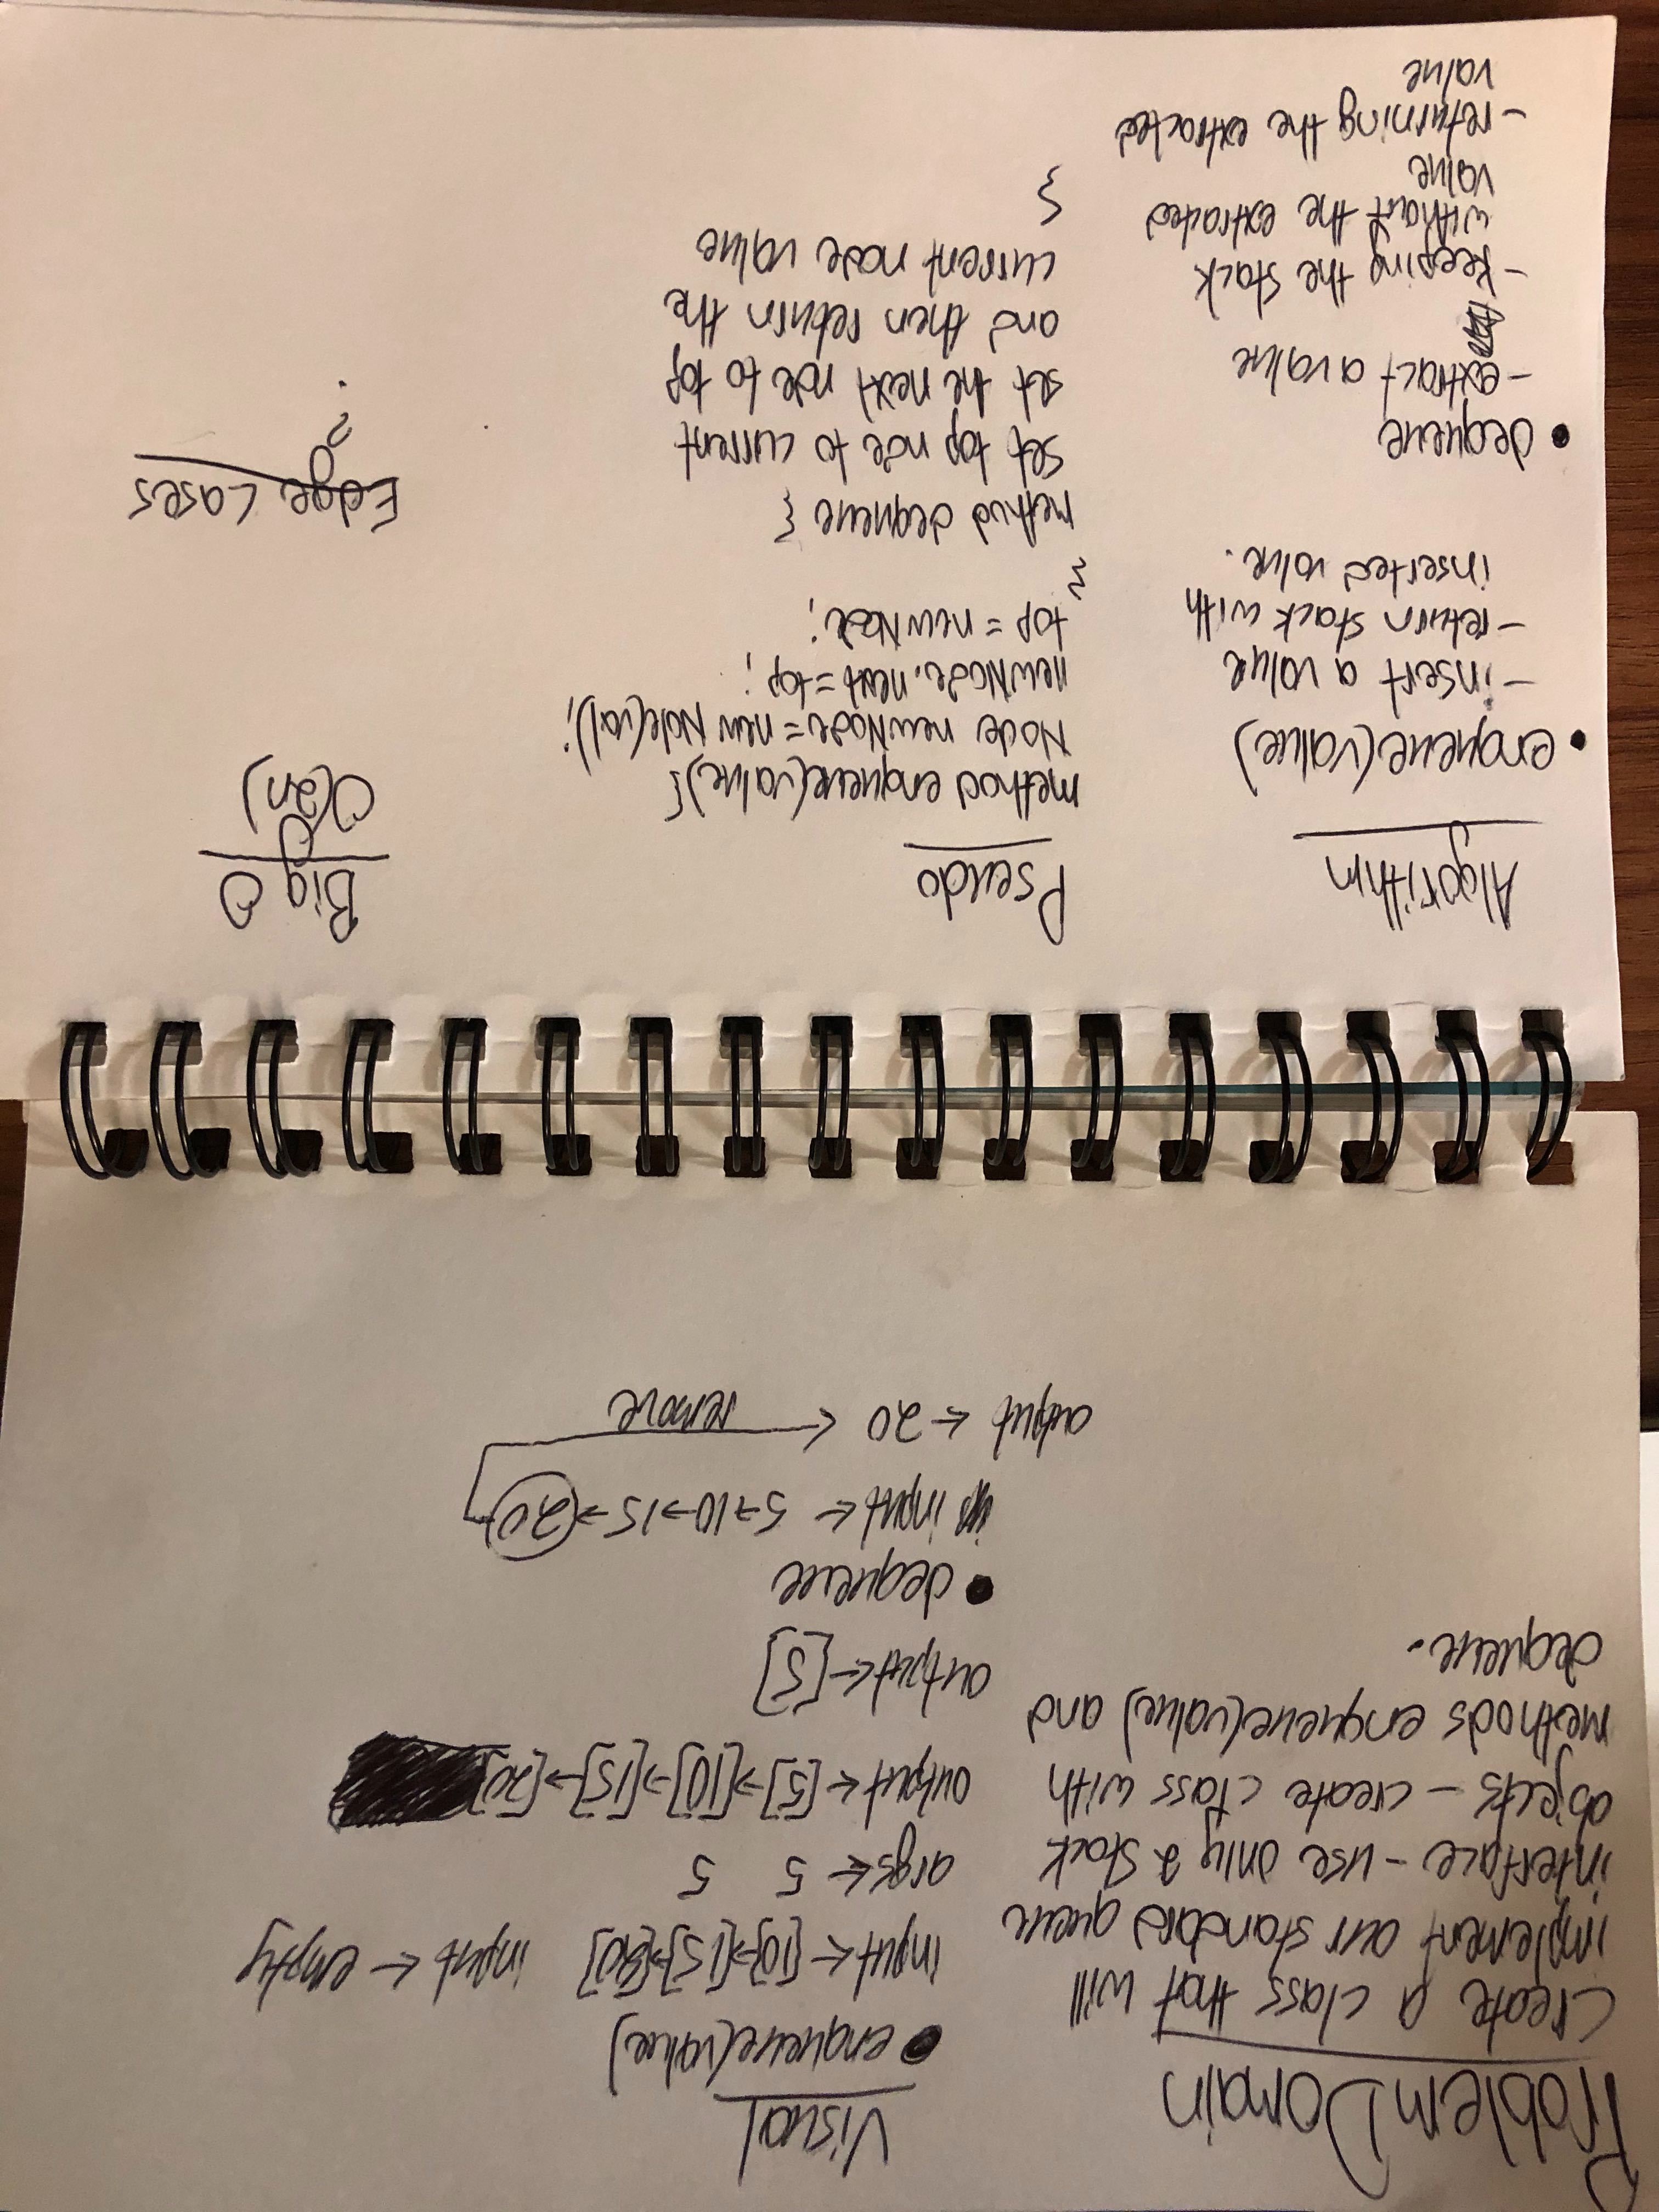 Problem Domain
create a class that will
implement our standard queue
interface - use only 2 stack
objects - create class with
methods enqueue(value) and
dequeue.
Visual
• enqueue(value)
input → [10]→[15]→[20] input → empty
args → 5 5
output → [5]→[10]→[15]→[20]
output → [5]
• dequeue
input → 5→10→15→20
output → 20 ← remove
Algorithm
• enqueue(value)
- insert a value
- return stack with
inserted value.
• dequeue
- extract a value
- keeping the stack
without the extracted
value
- returning the extracted
value
Pseudo
method enqueue(value){
Node newNode = new Node(val);
newNode.next = top;
top = newNode;
}
method dequeue {
set top node to current
set the next node to top
and then return the
current node value
}
Big O
O(2n)
Edge Cases
?